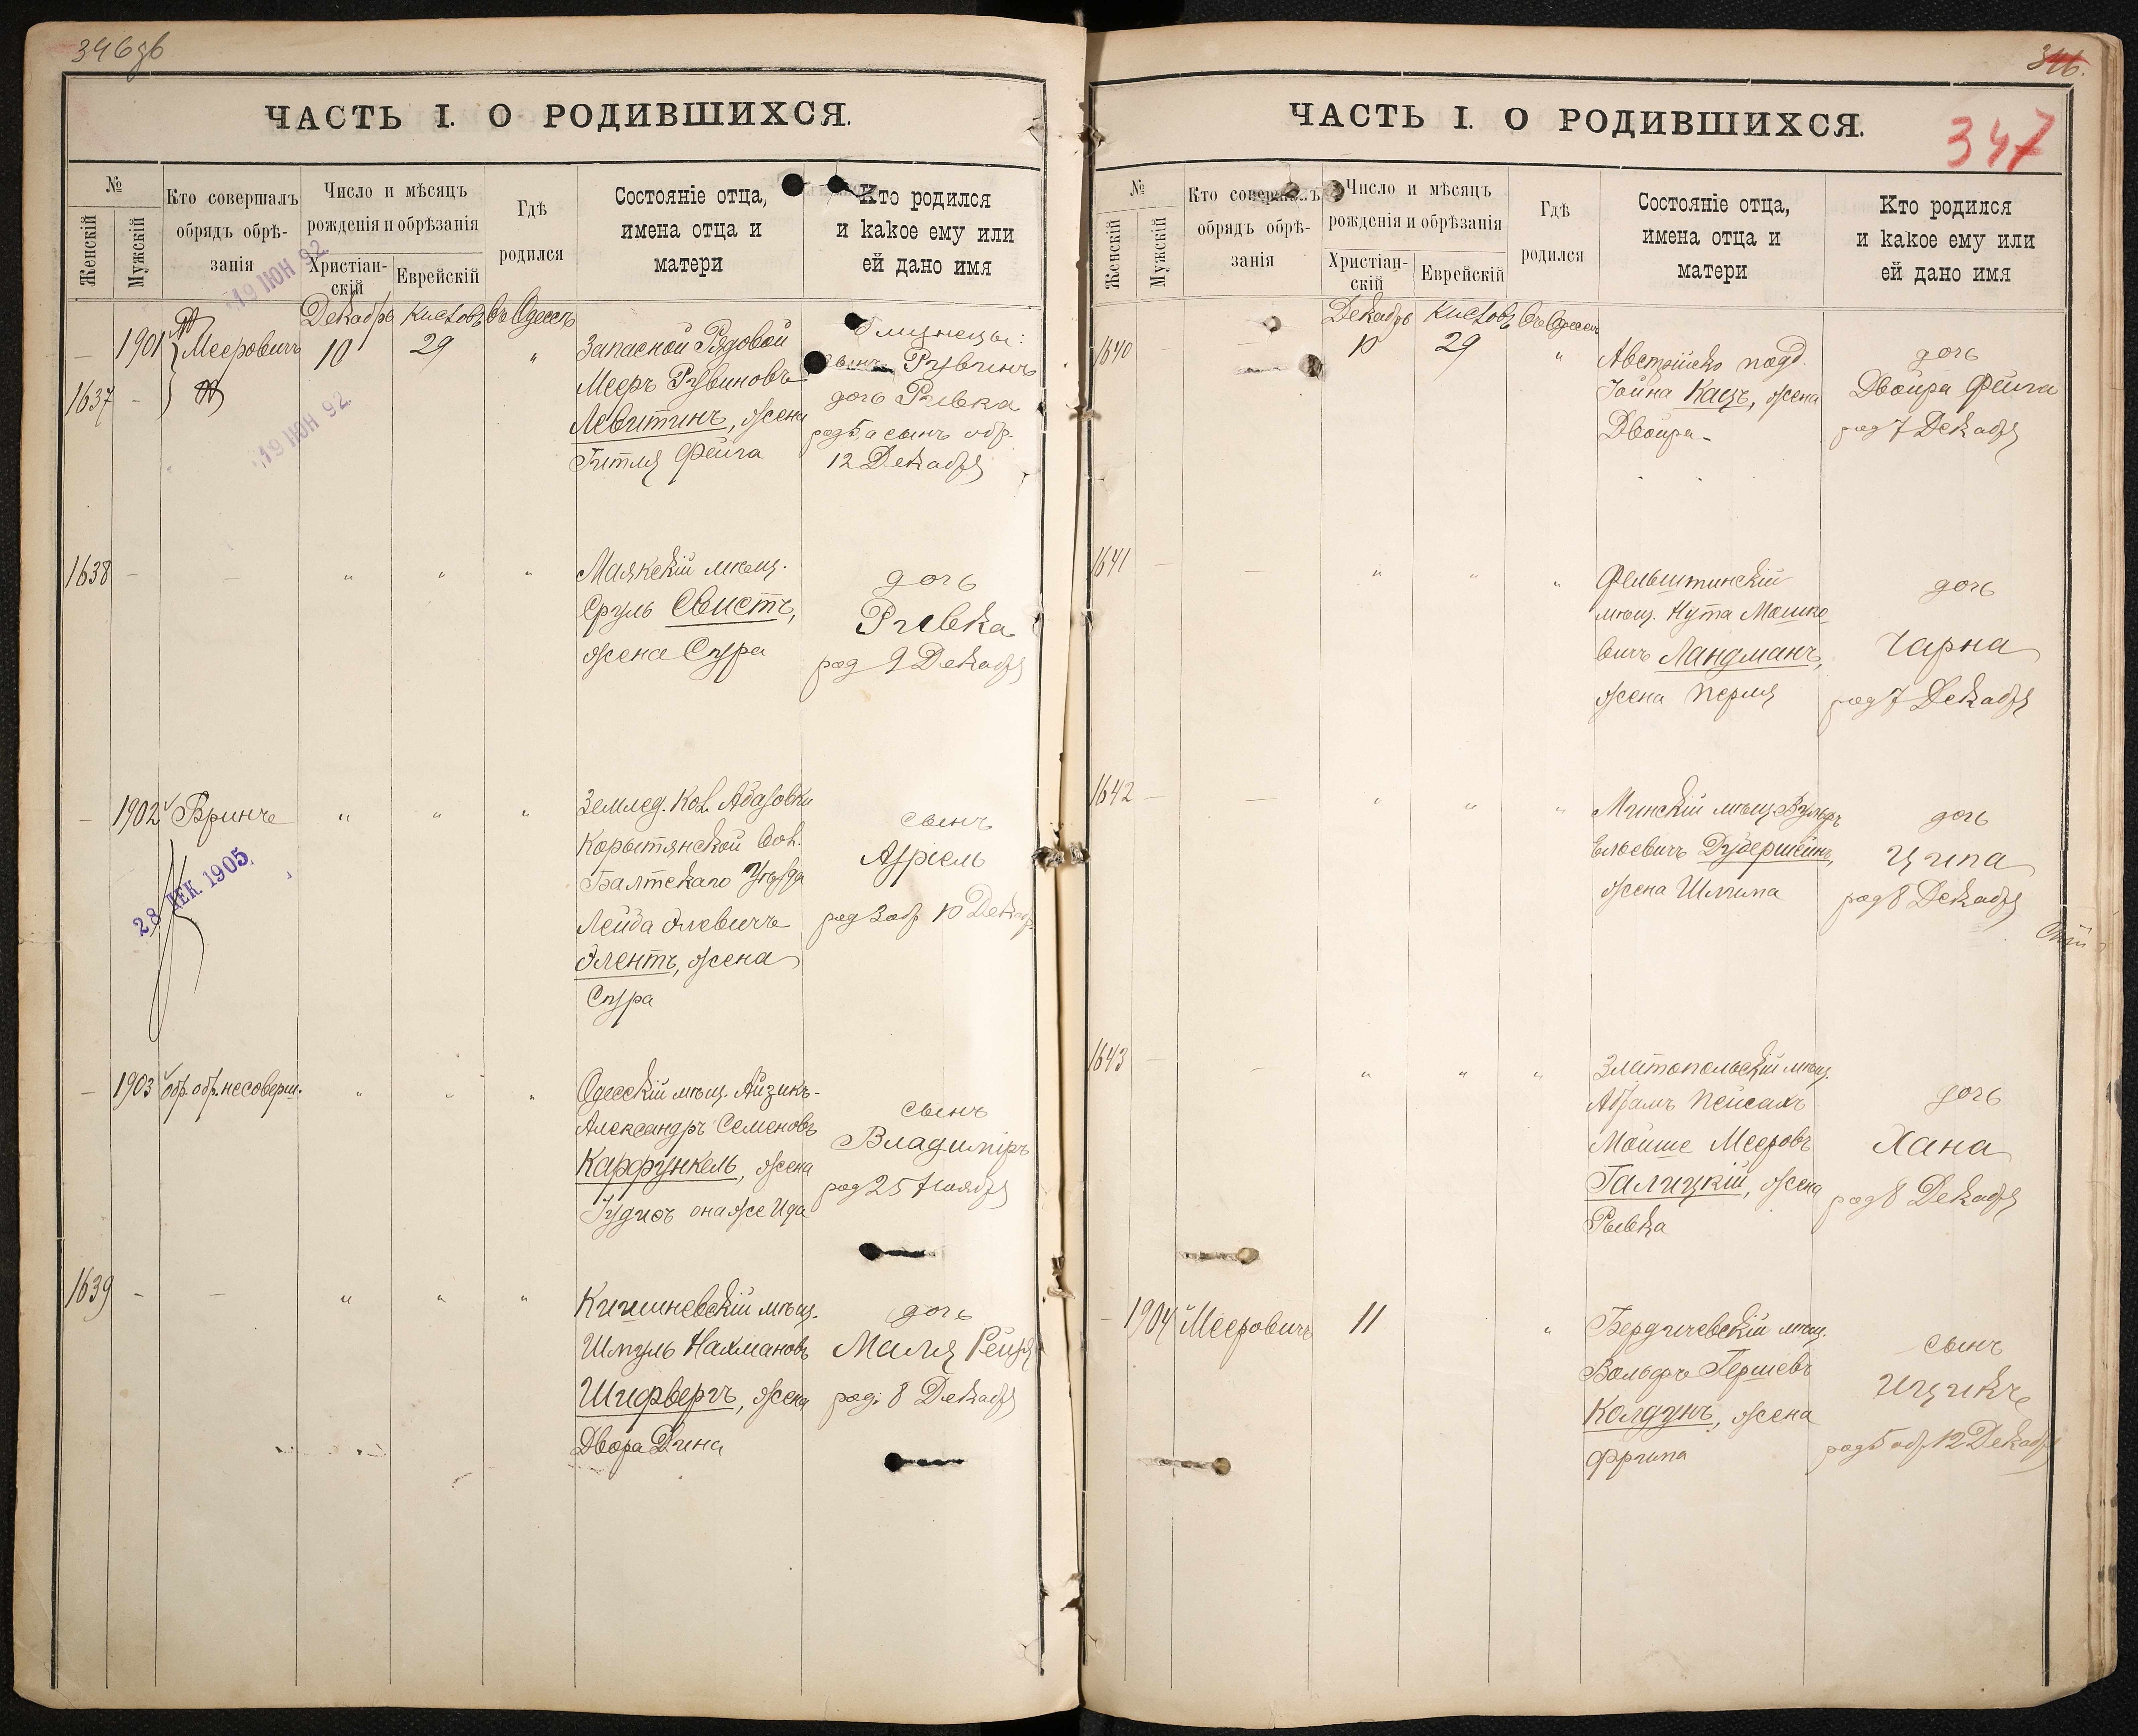 346 об
ЧАСТЬ I. О РОДИВШИХСЯ.
№
Женскій
Мужскій
Кто совершалъ
обрядъ обрѣ-
занія
Число и мѣсяцъ
рожденія и обрѣзанія
Христіан-
скій
Еврейскій
Гдѣ
родился
Состояніе отца,
имена отца и
матери
Кто родился
и какое ему или
ей дано имя
19 ІЮН 92.
19 ІЮН 92.
Декабрь Кислевъ Въ Одессѣ
1901 Мееровичъ 10 29 "
1637 -
Запасной Рядовой
Мееръ Рувиновъ
Левитинъ, жена
Гитля Фейга
Близнецы:
сынъ Рувинъ
дочь Ривка
род 5, а сынъ обр.
12 Декабря
1638 - - " " "
Маякскій мѣщ.
Сруль Свистъ,
жена Сура
дочь
Ривка
род 9 Декабря
- 1902 Бринче " " "
28 ДЕК. 1905.
Землед. Кол. Абазовки
Корытянской Вол.
Балтскаго Уѣзда
Лейба Элевичъ
Элентъ, жена
Сура
сынъ
Азріель
род 3 обр 10 Декабр.
- 1903 обр. обр. несоверш. " " "
Одесскій мѣщ. Айзикъ-
Александръ Семеновъ
Карфункель, жена
Іудиѳь она же Ида
сынъ
Владиміръ
род 25 Ноября
1639 - - " " "
Кишиневскій мѣщ.
Шмуль Нахмановъ
Шифвергъ, жена
Двора Дина
дочь
Маля Рейзя
род. 8 Декабря
346.
347
ЧАСТЬ I. О РОДИВШИХСЯ.
№
Женскій
Мужскій
Кто совершалъ
обрядъ обрѣ-
занія
Число и мѣсяцъ
рожденія и обрѣзанія
Христіан-
скій
Еврейскій
Гдѣ
родился
Состояніе отца,
имена отца и
матери
Кто родился
и какое ему или
ей дано имя
Декабрь Кислевъ Въ Одессѣ
1640 10 29 "
Австрійско подд.
Іойна Кацъ, жена
Двойра -
дочь
Двойра Фейга
род 7 Декабря
1641 - - " " "
Фельштинскій
мѣщ. Нута Мошко-
вичъ Ландманъ,
жена Перля
дочь
Чарна
род 7 Декабря
1642 - - " " "
Минскій мѣщ. Вульфъ
Ельевичъ Дудерштейнъ,
жена Шлима
дочь
Ципа
род 8 Декабря
1643 - - " " "
Златопольскій мѣщ.
Абрамъ Пейсахъ
Мойше Мееровъ
Галицкій, жена
Рывка
дочь
Хана
род 8 Декабря
- 1904 Мееровичъ 11 "
Бердичевскій мѣщ.
Вольфъ Гершевъ
Колдунъ, жена
Фрима
сынъ
Ицикъ
род 5 обр. 12 Декабря